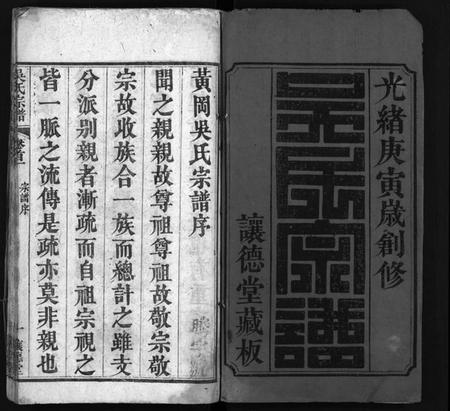 光緒庚寅歲創修
吳氏宗譜
讓德堂藏板
黃岡吳氏宗譜序
聞之親親故尊祖尊祖故敬宗敬
宗故收族合一族而總計之雖支
分派別親者漸疏而自祖宗視之
皆一脈之流傳是疏亦莫非親也
吳氏宗譜
卷首
宗譜序
一
讓德堂